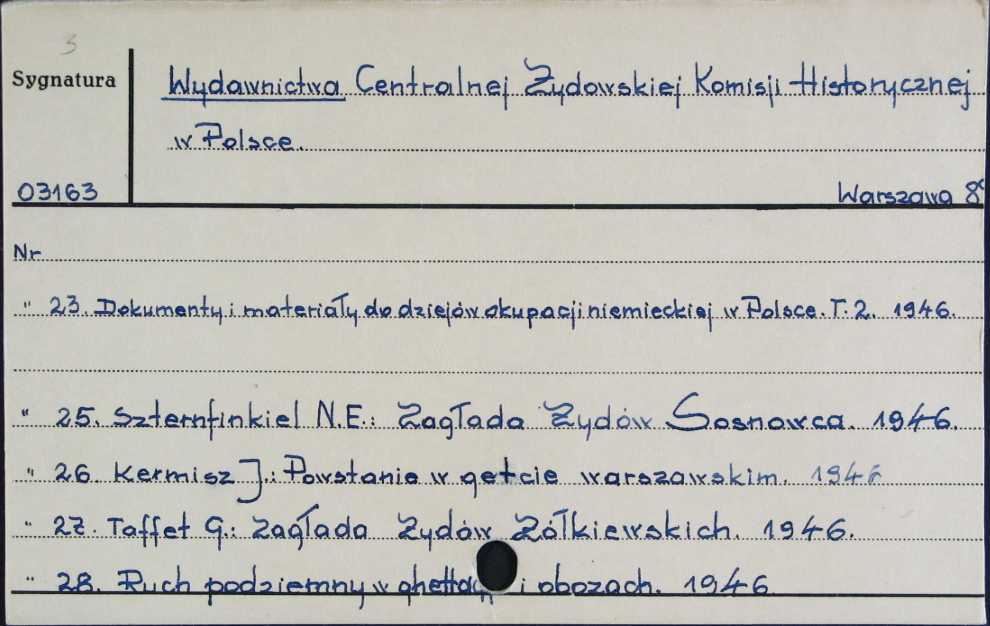 3
Sygnatura
Wydawnictwa Centralnej Żydowskiej Komisji Historycznej
w Polsce.
03163
Warszawa 8°
Nr
" 23. Dokumenty i materiały do dziejów okupacji niemieckiej w Polsce. T. 2. 1946.
" 25. Szternfinkiel N.E.: Zagłada Żydów Sosnowca. 1946.
" 26. Kermisz J.: Powstanie w getcie warszawskim. 1946
" 27. Taffet G.: Zagłada Żydów Żółkiewskich. 1946.
" 28. Ruch podziemny w ghettach i obozach. 1946